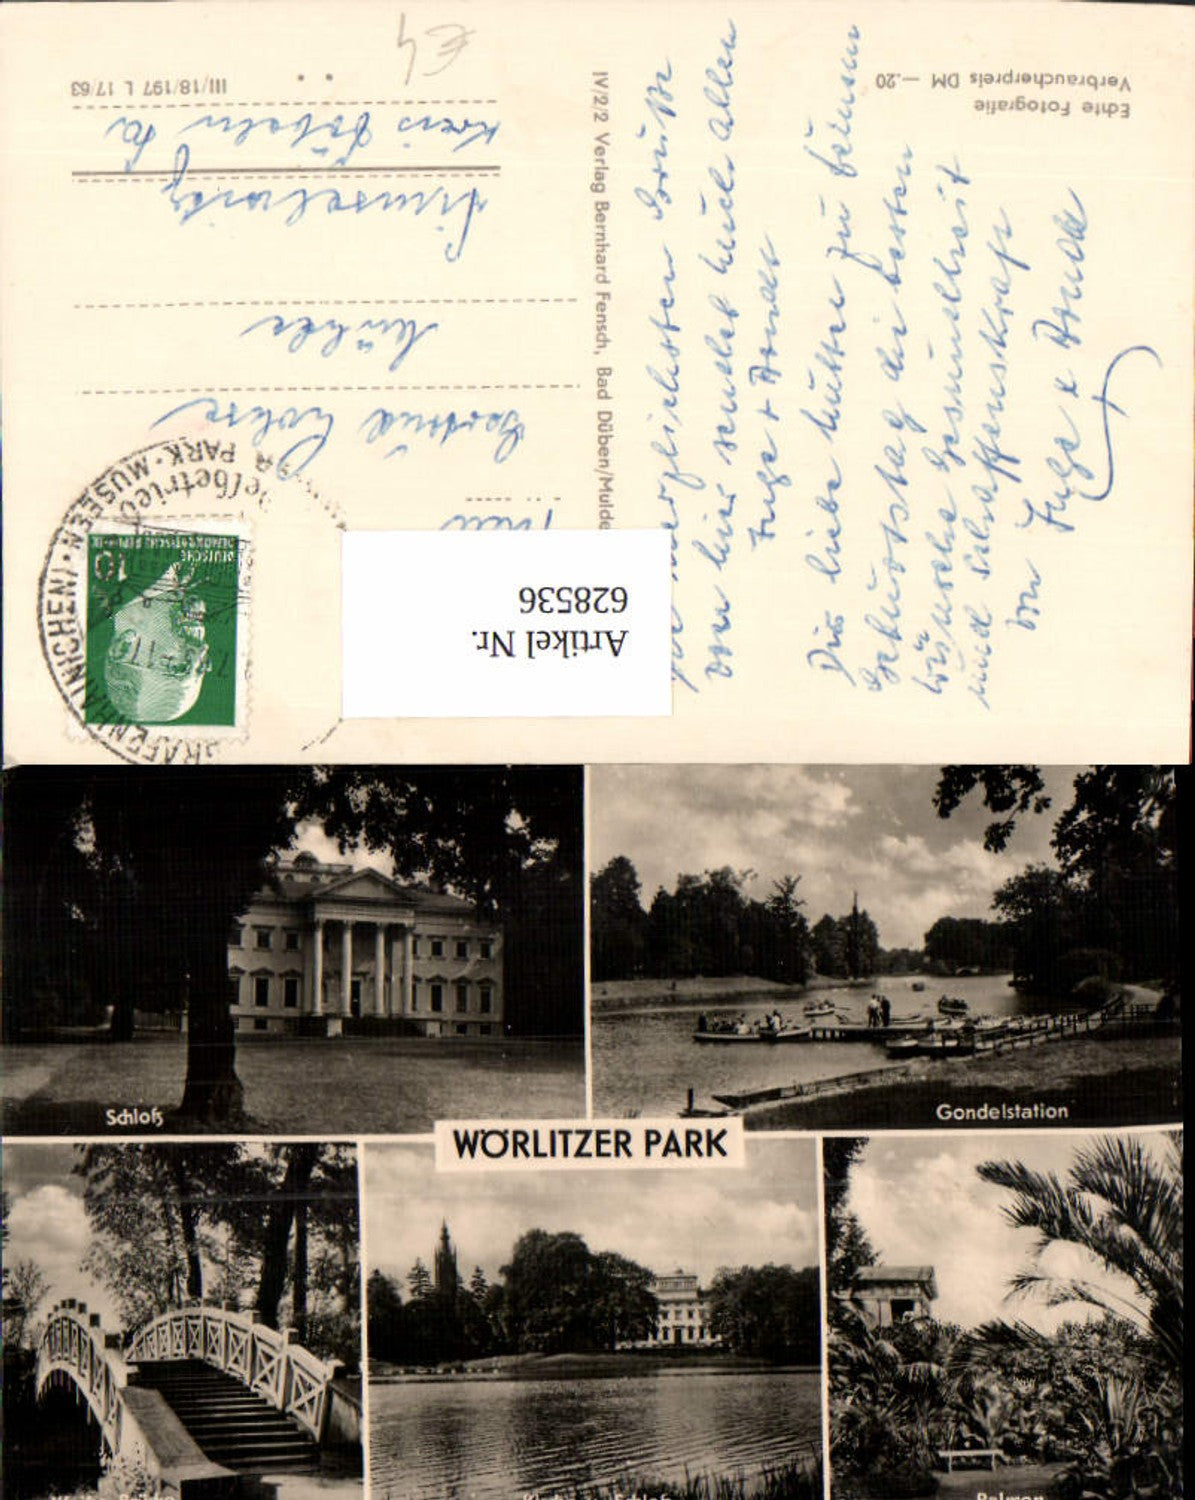 Echte Fotografie
Verbraucherpreis DM —.20
III/18/197 L 17/63
€4
IV/2/2 Verlag Bernhard Fensch, Bad Düben/Mulde
Die herzlichsten Grüße
von hier sendet Euch allen
Inge + 
Dir liebe Mutter zu deinem
Geburtstag die besten
Wünsche Gesundheit
und Schaffenskraft
von Inge & 
Gertrud
Mühle
Kreis Döbeln Sa
GRÄFENHAINICHEN
PARK · MUSEEN
DEUTSCHE
DEMOKRATISCHE REPUBLIK
10
Artikel Nr.
628536
Schloß
Gondelstation
WÖRLITZER PARK
Palmen